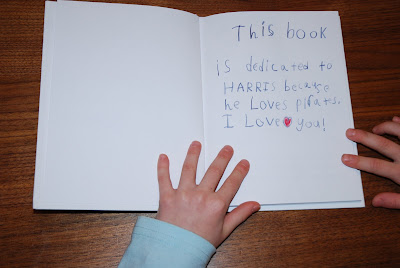 This book
is dedicated to
HARRIS because
he LOVES pirats.
I LOVE you!